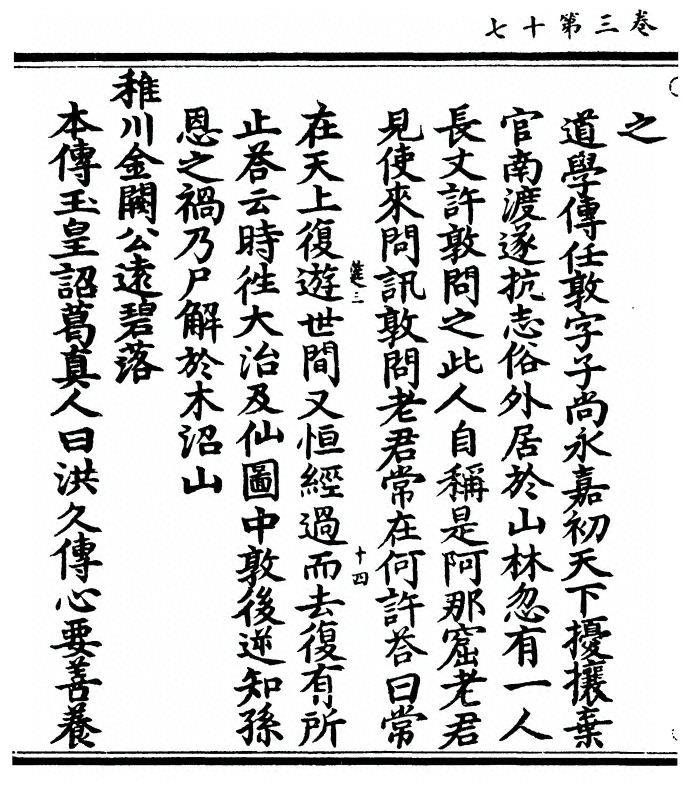 卷三第十七
之
道學傳任敦字子尚永嘉初天下擾攘棄
官南渡遂抗志俗外居於山林忽有一人
長丈許敦問之此人自稱是阿那窟老君
見使來問訊敦問老君常在何許荅曰常
筵三
十四
在天上復遊世間又恒經過而去復有所
止荅云時往大治及仙圖中敦後逆知孫
恩之禍乃尸解於木沼山
稚川金闕公遠碧落
本傳玉皇詔葛真人曰洪久傳心要善養